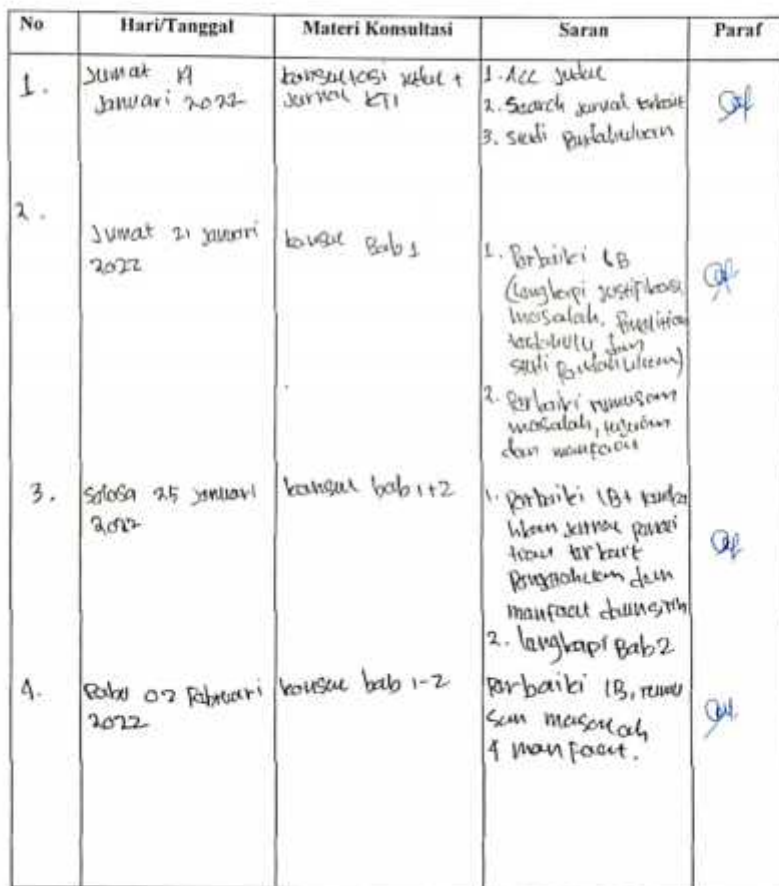 No Hari/Tanggal Materi Konsultasi Saran Paraf
1. Jumat 14 konsultasi judul + 1. Acc Judul
Januari 2022 Jurnal KTI 2. Search jurnal terkait
3. studi Pendahuluan
2.
Jumat 21 Januari konsul Bab 1
2022
1. Perbaiki LB
(lengkapi justifikasi
masalah, Penelitian
terdahulu dan
studi Pendahuluan)
2. Perbaiki rumusan
masalah, tujuan
dan manfaat
3. Selasa 25 Januari konsul bab 1+2 1. Perbaiki LB +
2022 jurnal
terkait
Pengetahuan dan
manfaat daun sirih
2. lengkapi Bab 2
4. Rabu 02 Februari konsul bab 1-2 Perbaiki LB, rumu
2022 san masalah
& manfaat.